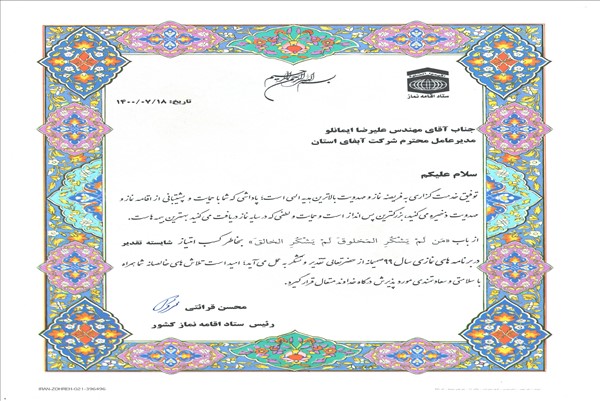 بسم الله الرحمن الرحیم
ستاد اقامه نماز
تاریخ: ۱۴۰۰/۰۷/۱۸
جناب آقای مهندس علیرضا ایمانلو
مدیرعامل محترم شرکت آبفای استان
سلام علیکم
توفیق خدمت گزاری به فریضه نماز و صدو‌یت بالاترین هدیه الهی است؛ پاداشی که شما با حمایت و پشتیبانی از اقامه نماز و
ذخیره می کنید، بزرگترین پس انداز است و حمایت و لطفی که در سایه نماز دریافت می کنید بهترین بیمه هاست.
از باب «مَن لَم یَشکُرِ المَخلوق لَم یَشکُرِ الخالق» بخاطر کسب امتیاز شایسته تقدیر
در برنامه های نمازی سال ۹۹ صمیمانه از حضرتعالی تقدیر و تشکر به عمل می آید؛ امید است تلاش های خالصانه شما همراه
با سلامتی و سعادتمندی مورد پذیرش درگاه خداوند متعال قرار گیرد.
محسن قرائتی
رئیس ستاد اقامه نماز کشور
IRAN-ZOHREH-G21-396#96